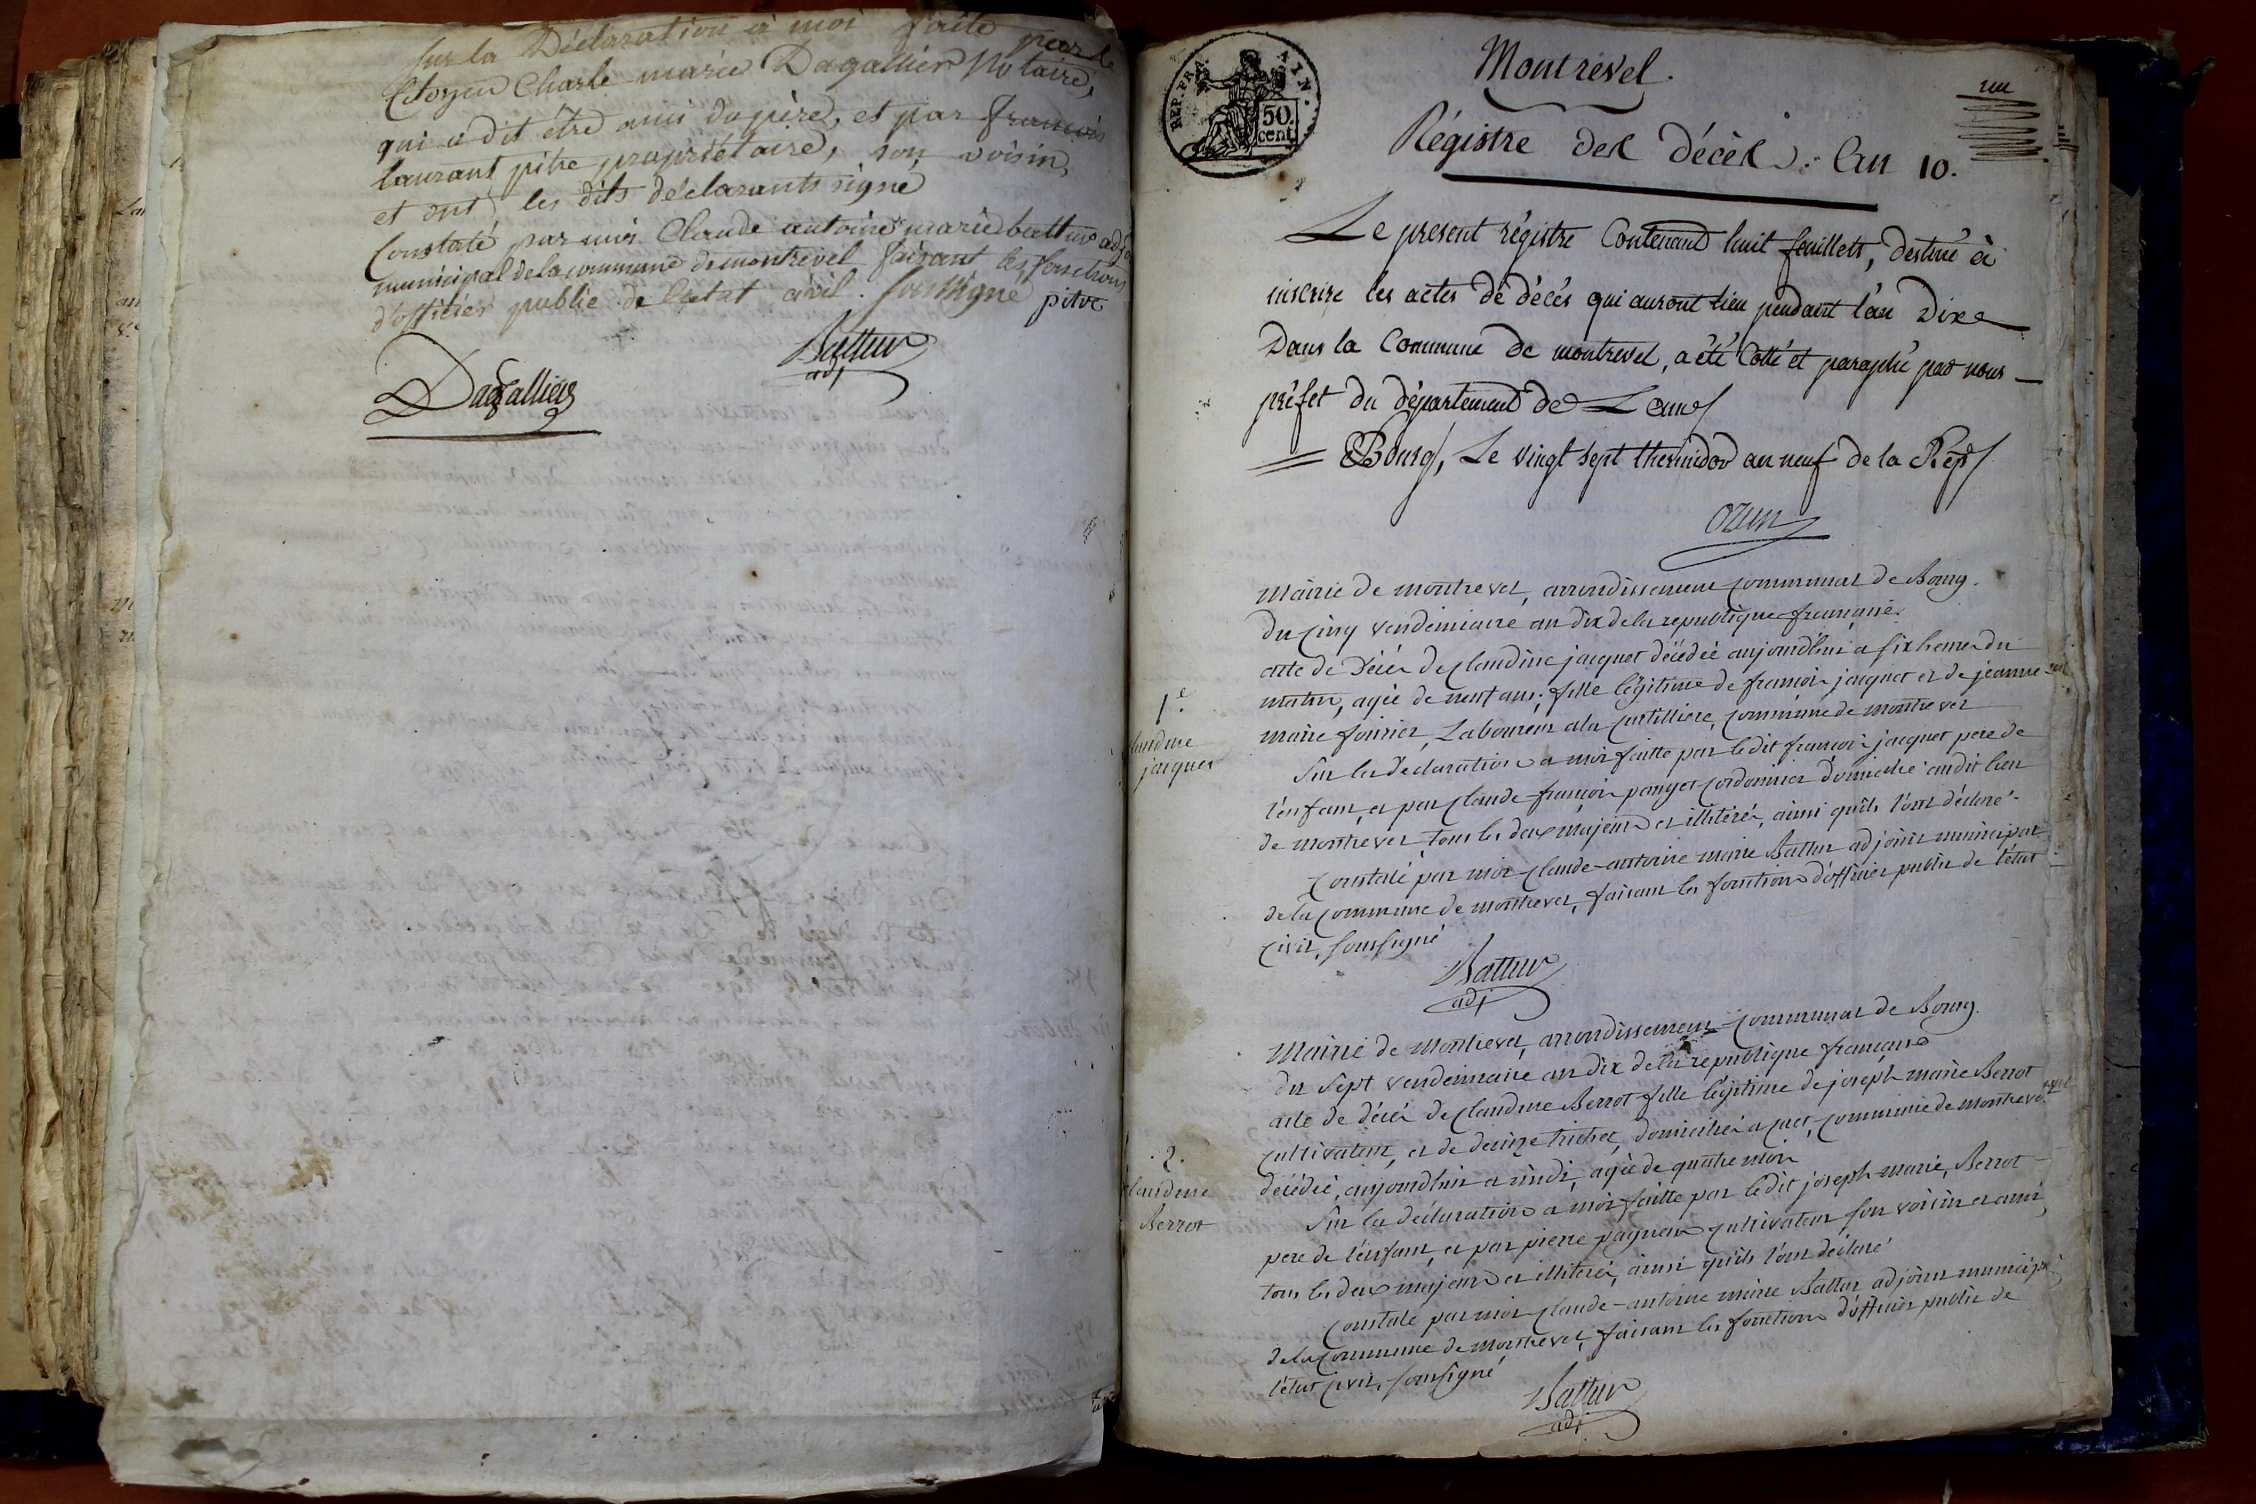 Sur la Déclaration à moi faite par le
Citoyen Charle marie Dagallier Notaire,
qui a dit être amis du père, et par françois
laurant pitre propriétaire, son voisin,
et ont les dits déclarants signé
Constaté par moi Claude antoine marie battur adj
municipal de la commune de montrevel faisant les fonctions
d'officier public de l'état civil. soussigné pitre
Battur
adj
Dagallier
REP. FRA. AIN.
50.
cent.
Montrevel.
un
Régistre des décès. An 10.
Le present régistre Contenant huit feuillets, destiné à
inscrire les actes de décés qui auront lieu pendant l'an Dix
Dans la Commune de montrevel, a été Cotté et paraphé par nous
préfet du département de L'ain
Bourg, Le vingt sept thermidor an neuf de la Rep
Ozun
Mairie de montrevel, arrondissement communal de Bourg.
Du cinq vendemiaire an dix de la republique française.
acte de décés de Claudine jacquet décédée aujourdhui a six heures du
matin, agée de neuf ans; fille légitime de françois jacquet et de jeanne
marie fourier, Laboureur a la Curtilliere, commune de montrevel
1.e
Claudine
jacquet
Sur la declaration a moi faitte par ledit françois jacquet pere de
l'enfant, et par claude françois panget cordonnier domicilié audit lieu
de montrevel, tous les deux majeurs et illitérés, ainsi qu'ils l'ont déclaré.
Constaté par moi claude-antoine marie Battur adjoint municipal
de la commune de montrevel, faisant les fonctions d'officier public de l'état
civil, soussigné
Battur
adj
Mairie de montrevel, arrondissement communal de Bourg.
du sept vendemiaire an dix de la republique française
acte de décés de Claudine Berrot fille légitime de joseph marie Berrot
cultivateur, et de denize trichet, domiciliés a cuet, commune de montrevel
décédée, aujourdhui a midi, agée de quatre mois
.2.
Claudine
Berrot
Sur la declaration a moi faitte par ledit joseph marie, Berrot
pere de l'enfant, et par pierre pagneux cultivateur son voisin et ami,
tous les deux majeurs et illiterés, ainsi qu'ils l'ont declaré
Constaté par moi claude-antoine marie Battur adjoint municipal
de la commune de montrevel, faisant les fonctions d'officier public de
l'état civil, soussigné
Battur
adj